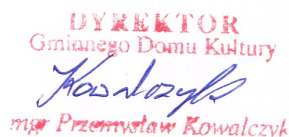 DYREKTOR
Gminnego Domu Kultury
Kowalczyk
mgr Przemysław Kowalczyk